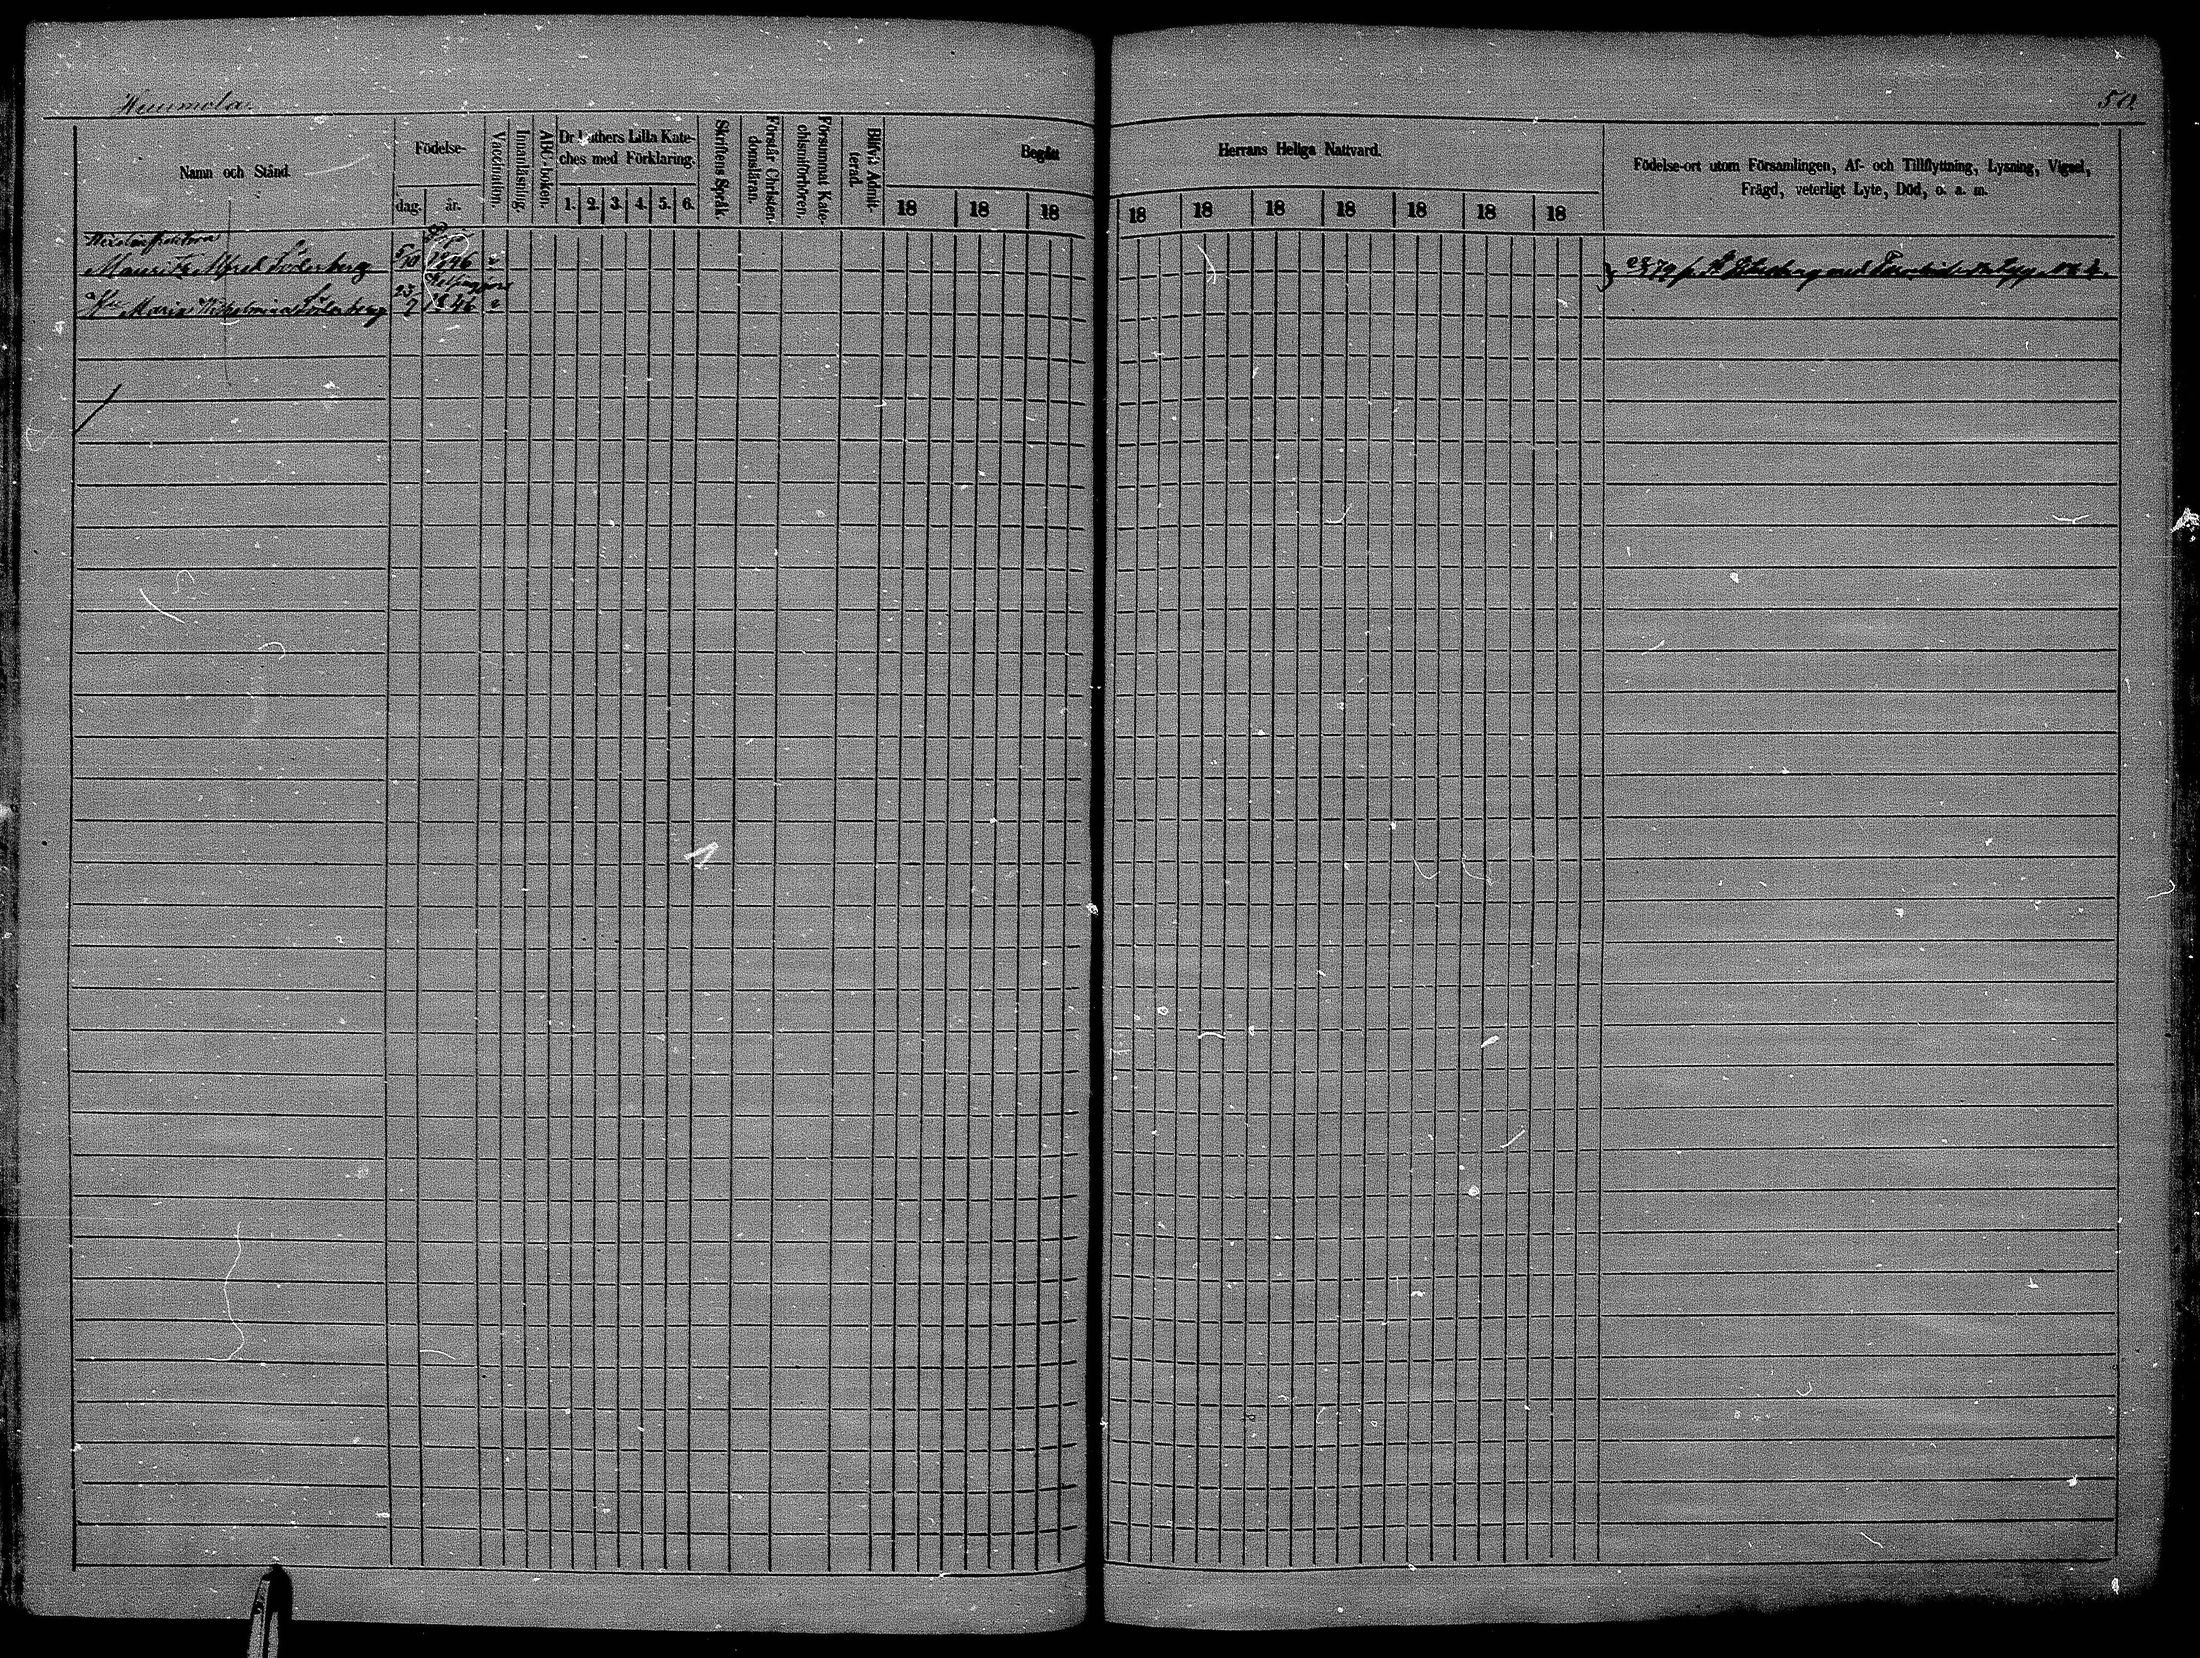 Huumola.
50.
Namn och Stånd.
Födelse-
dag.
år.
Vaccination.
Innanläsning.
ABC-boken.
Dr Luthers Lilla Kate-
ches med Förklaring.
1. 2. 3. 4. 5. 6.
Skriftens Språk.
Förstår Christen-
domsläran.
Försummat Kate-
chismiförhören.
Blifvit Admit-
terad.
Begått
Herrans Heliga Nattvard.
18 18 18 18 18 18 18 18 18 18
Födelse-ort utom Församlingen, Af- och Tillflyttning, Lysning, Vigsel,
Frägd, veterligt Lyte, Död, o. a. m.
Mauritz Alfred Söderberg 5/10 1846
Helsingfors
Hu Maria Wilhelmina Söderberg 23/7 1846